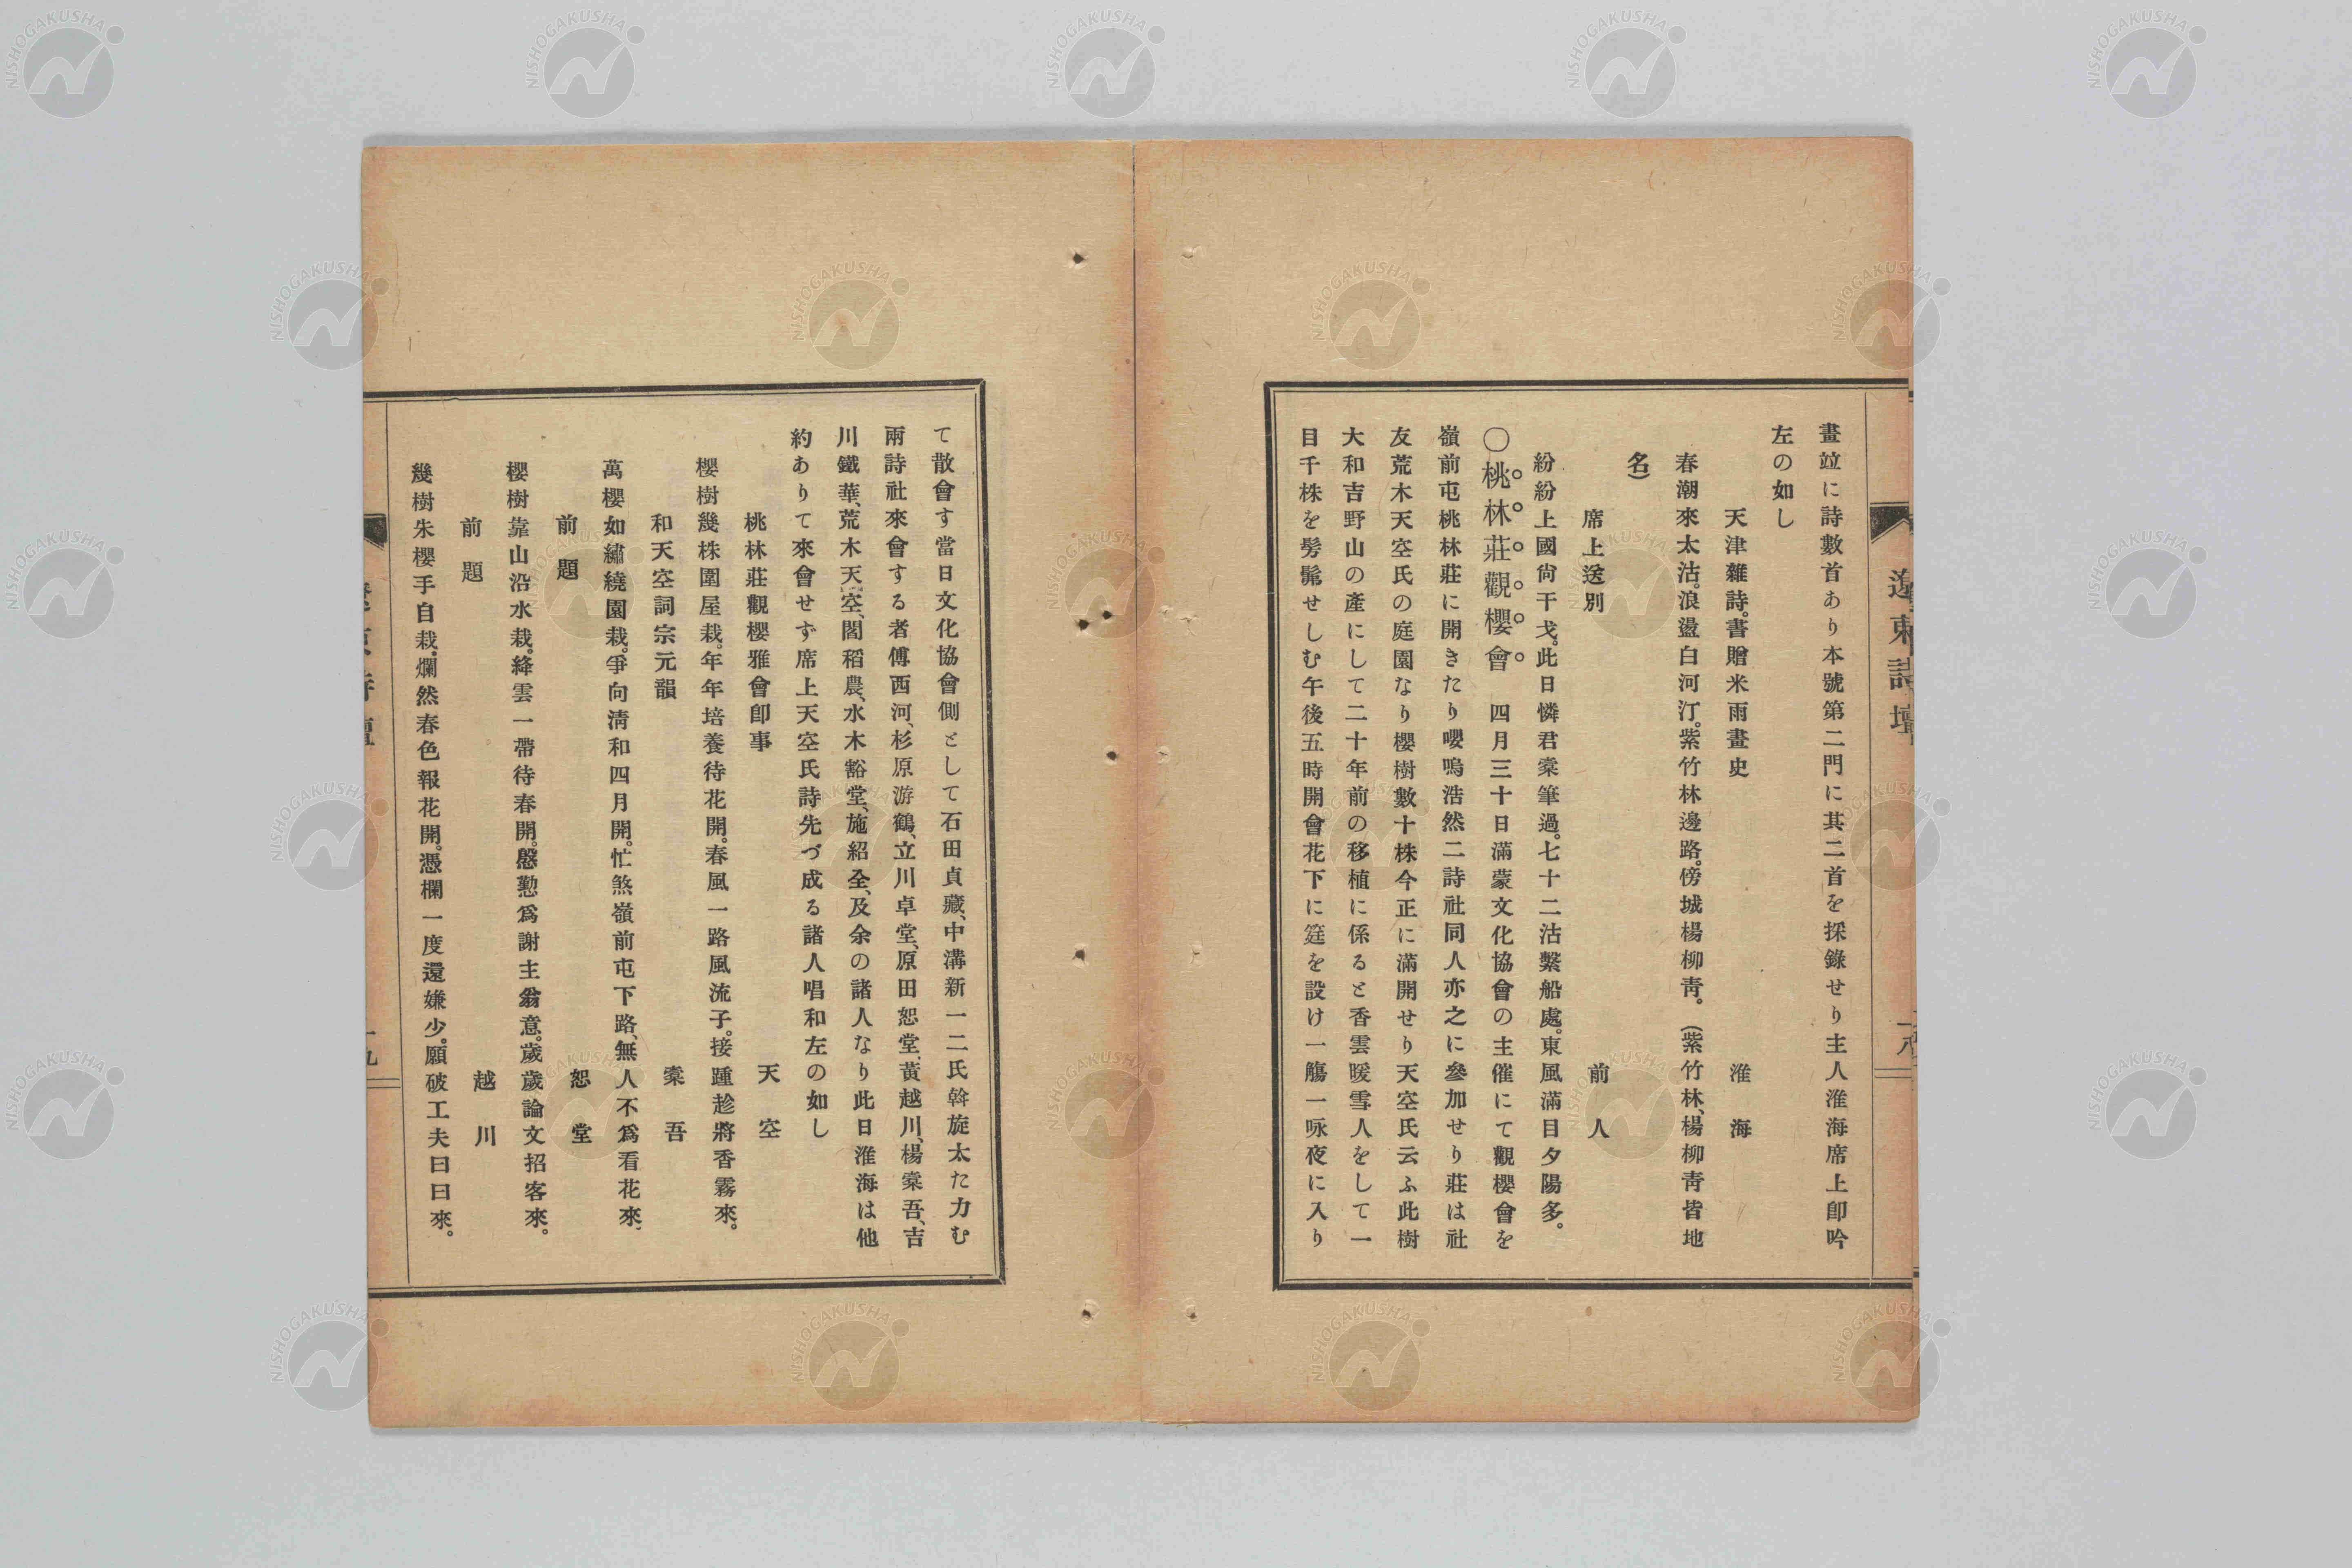 遼東詩壇
一八
畫竝に詩數首あり本號第二門に其二首を採錄せり主人淮海席上卽吟
左の如し
天津雜詩。書贈米雨畫史　淮海
春潮來太沽。浪盪白河汀。紫竹林邊路。傍城楊柳靑。（紫竹林、楊柳靑皆地
名）
席上送別　前人
紛紛上國尙干戈。此日憐君槖筆過。七十二沽繫船處。東風滿目夕陽多。
〇桃林莊觀櫻會　四月三十日滿蒙文化協會の主催にて觀櫻會を
嶺前屯桃林莊に開きたり嚶鳴浩然二詩社同人亦之に參加せり莊は社
友荒木天空氏の庭園なり櫻樹數十株今正に滿開せり天空氏云ふ此樹
大和吉野山の產にして二十年前の移植に係ると香雲暖雪人をして一
目千株を髣髴せしむ午後五時開會花下に筵を設け一觴一咏夜に入り
て散會す當日文化協會側として石田貞藏、中溝新一二氏斡旋太た力む
兩詩社來會する者傅西河、杉原游鶴、立川卓堂、原田恕堂、黃越川、楊槖吾、吉
川鐵華、荒木天空、閻稻農、水木豁堂、施紹全、及余の諸人なり此日淮海は他
約ありて來會せず席上天空氏詩先づ成る諸人唱和左の如し
桃林莊觀櫻雅會卽事　天空
櫻樹幾株圍屋栽。年年培養待花開。春風一路風流子。接踵趁將香霧來。
和天空詞宗元韻　槖吾
萬櫻如繡繞園栽。爭向淸和四月開。忙煞嶺前屯下路、無人不爲看花來、
前題　恕堂
櫻樹靠山沿水栽。絳雲一帶待春開。慇懃爲謝主翁意。歲歲論文招客來。
前題　越川
幾樹朱櫻手自栽。爛然春色報花開。憑欄一度還嫌少。願破工夫日日來。
一九